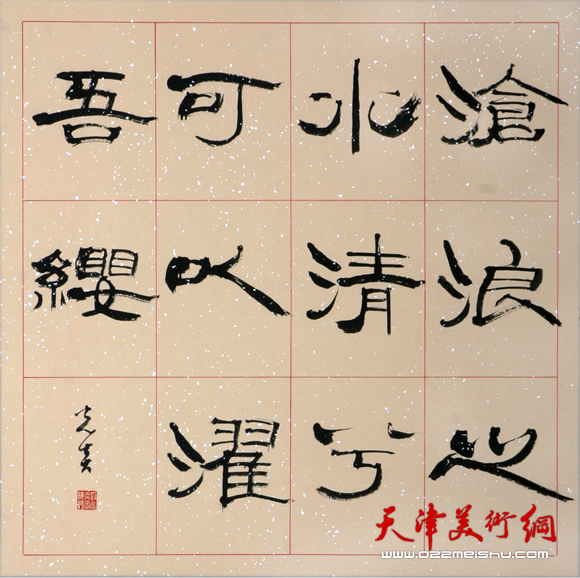 滄浪之
水清兮
可以濯
吾纓
天津美術網
www.022meishu.com